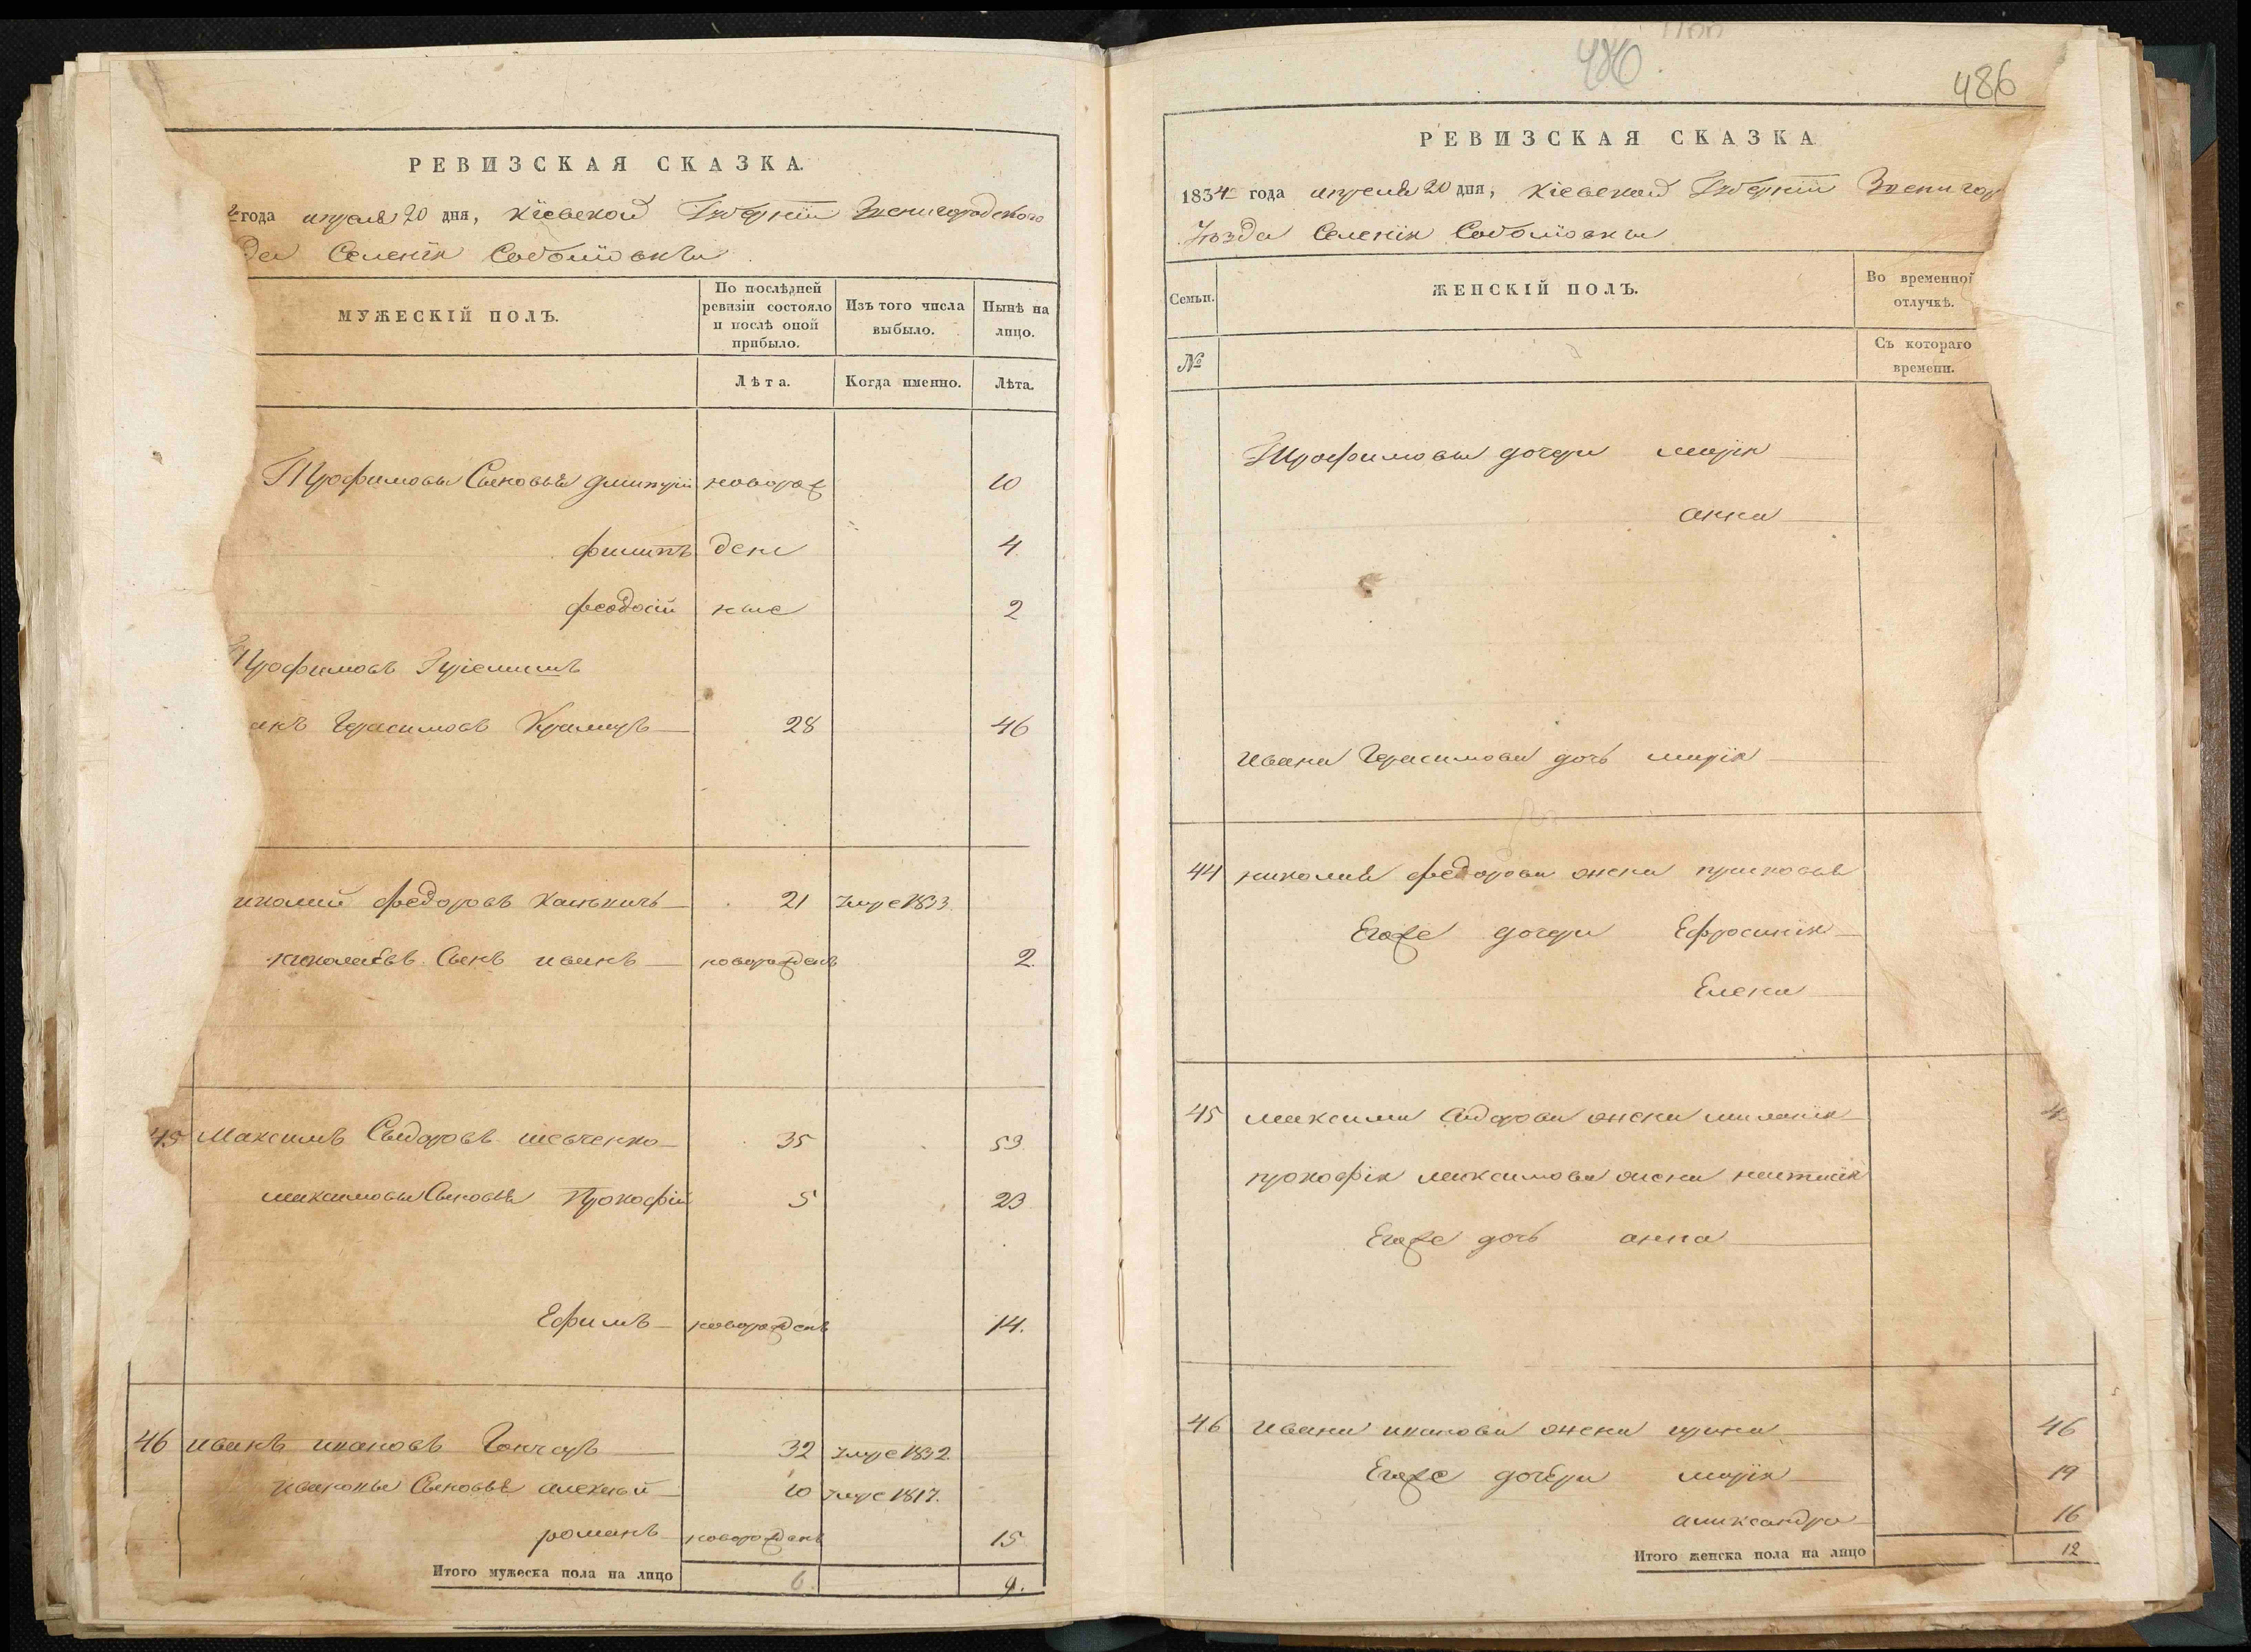 РЕВИЗСКАЯ СКАЗКА.
года апреля 20 дня, Кіевской Губерніи Звенигородского
Селенія Соболювки
МУЖЕСКІЙ ПОЛЪ.
По послѣдней ревизіи состояло и послѣ оной прибыло.
Изъ того числа выбыло.
Нынѣ на лицо.
Лѣта.
Когда именно.
Лѣта.
Трофимовы Сыновья дмитрій новорож 10
филипъ ден 4
феодосій ные 2
Трофимовъ Пріемишъ
Герасимовъ 28 46
федоровъ 21 Умре 1833.
николаевъ Сынъ иванъ новорожденъ 2.
45 Максимъ Сыдоровъ шевченко 35 53.
максимовы Сыновья Прокофій 5 23
Ефимъ новорожденъ 14.
46 иванъ ивановъ Гончаръ 32 Умре 1832.
ивановы Сыновья алексъй 10 Умре 1817.
романъ новорожденъ 15
Итого мужеска пола на лицо 6. 9.
486.
486
РЕВИЗСКАЯ СКАЗКА
1834 года апреля 20 дня, Кіевской Губерніи Звенигор
Уѣзда Селенія Соболювки
Семьи.
ЖЕНСКІЙ ПОЛЪ.
Во временной отлучкѣ.
№
Съ котораго времени.
Трофимовы дочери марія
анна
ивана Герасимова дочь марія
44 николая федорова жена
Егоже дочери Ефросинія
Елена
45 максима Сидорова жена миланія
прокофія максимова жена
Егоже дочь анна
46 ивана иванова жена ирина 46
Егоже дочери марія 19
александра 16
Итого женска пола на лицо 12